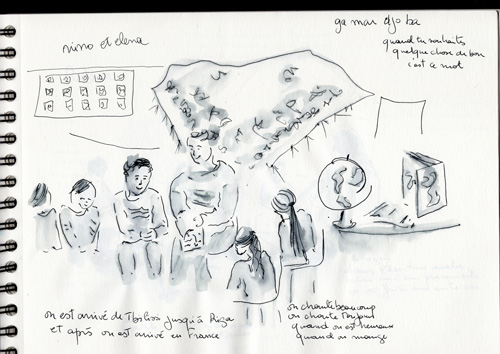 nino et elena
ga mar djo ba
quand tu souhaites
quelque chose de bon
c'est ce mot
on est arrivé de Tbilissi jusqu'à Riga
et après on est arrivé en France
on chante beaucoup
on chante toujours
quand on est heureux
quand on mange